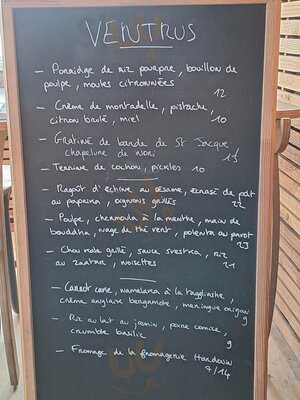 VENTRUS
— Porridge de riz pourpre, bouillon de
poulpe, moules citronnées
12
— Crème de mortadelle, pistache,
citron brulé, miel 10
— Gratiné de barde de St Jacque
chapelure de nori 13
— Terrine de cochon, pickles 10
— Ragoût d'échine au sésame, écrasé de pdt
au paprika, oignons grillés 22
— Poulpe, chermoula à la menthe, main de
bouddha, nuage de thé vert, polenta au pavot
23
— Chou rave grillé, sauce svestka, riz
au zaatar, noisettes 21
— Carrot cake,
crème anglaise bergamote, meringue
9
— Riz au lait au jasmin, poire
crumble basilic 9
— Fromage de la fromagerie Hardouin
7/14